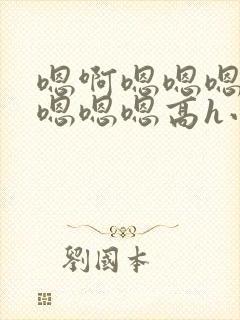 嗯啊嗯嗯嗯
嗯嗯嗯高h、
劉國本